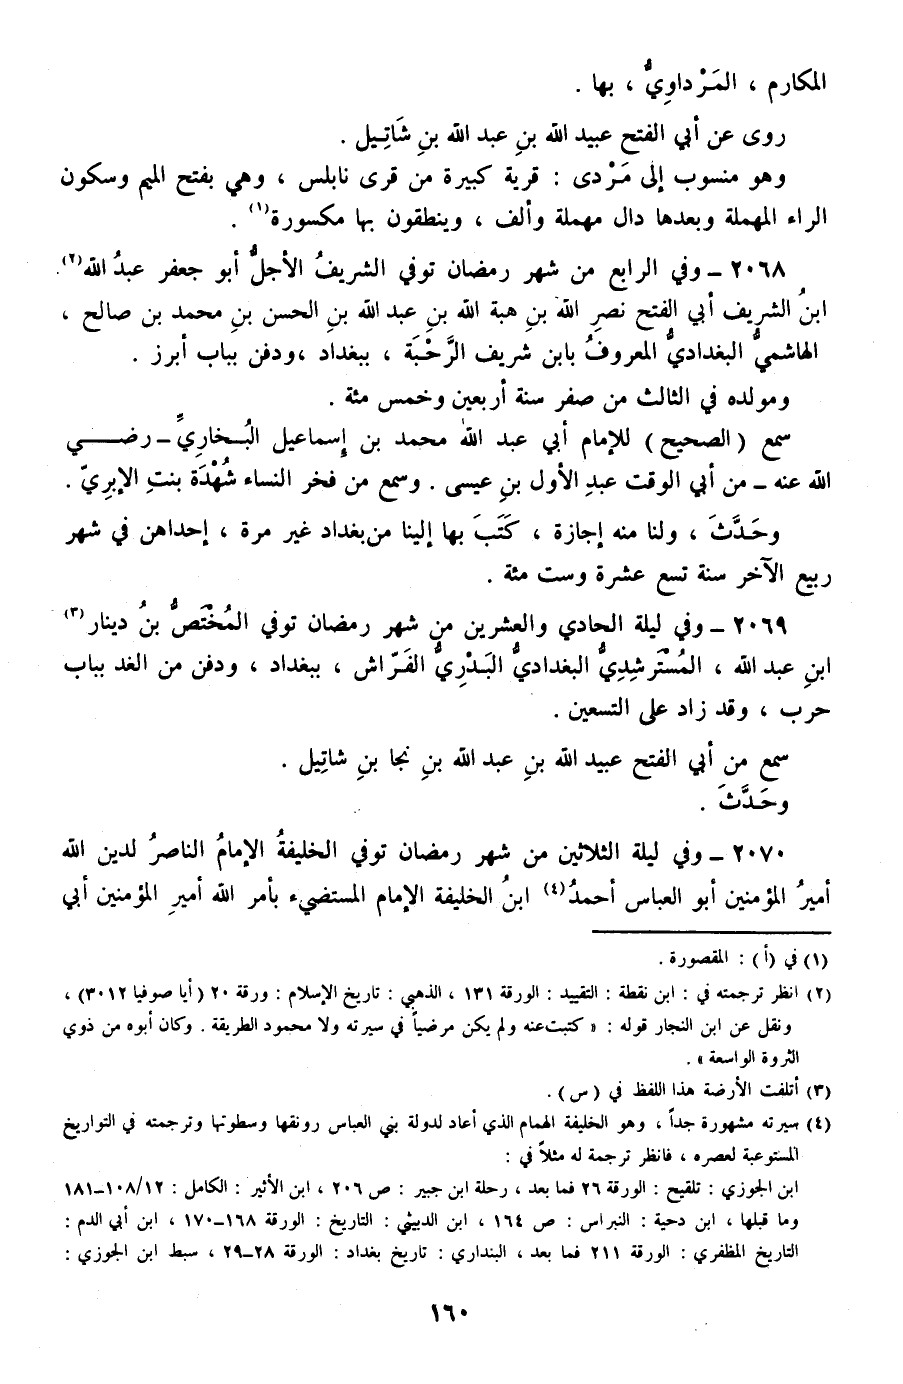 المكارم ، المَرْداوِيُّ ، بها .
روى عن أبي الفتح عبيد الله بنِ عبد الله بنِ شَاتِيل .
وهو منسوب إلى مَرْدى : قرية كبيرة من قرى نابلس ، وهي بفتح الميم وسكون
الراء المهملة وبعدها دال مهملة وألف ، وينطقون بها مكسورة(١) .
٢٠٦٨ ــ وفي الرابع من شهر رمضان توفي الشريفُ الأجلُّ أبو جعفر عبدُ الله(٢).
ابنُ الشريف أبي الفتح نصرِ الله بنِ هبة الله بنِ عبد الله بنِ الحسن بنِ محمد بن صالح ،
الهاشميُّ البغداديُّ المعروفُ بابن شريف الرَّحْبَة ، ببغداد ،ودفن بباب أبرز .
ومولده في الثالث من صفر سنة أربعين وخمس مئة .
سمع ( الصحيح ) للإمام أبي عبد الله محمد بن إسماعيل البُخاريِّ ــ رضي
الله عنه ــ من أبي الوقت عبدِ الأول بنِ عيسى . وسمع من فخر النساء شُهْدَة بنتِ الإبريّ .
وحَدَّثَ ، ولنا منه إجازة ، كَتَبَ بها إلينا من بغداد غير مرة ، إحداهن في شهر
ربيع الآخر سنة تسع عشرة وست مئة .
٢٠٦٩ ــ وفي ليلة الحادي والعشرين من شهر رمضان توفي المُخْتَصُّ بنُ دينار(٣)
ابنِ عبد الله ، المُسْتَرشِدِيُّ البغداديُّ البَدْرِيُّ الفَرّاش ، ببغداد ، ودفن من الغد بباب
حرب ، وقد زاد على التسعين .
سمع من أبي الفتح عبيد الله بنِ عبد الله بنِ نجا بنِ شاتِيل .
وحَدَّثَ .
٢٠٧٠ ــ وفي ليلة الثلاثين من شهر رمضان توفي الخليفةُ الإمامُ الناصرُ لدين الله
أميرُ المؤمنين أبو العباس أحمدُ(٤) ابنُ الخليفة الإمام المستضيء بأمر الله أميرِ المؤمنين أبي
(١) في (أ) : المقصورة .
(٢) انظر ترجمته في : ابن نقطة : التقييد : الورقة ١٣١ ، الذهبي : تاريخ الإسلام : ورقة ٢٠ ( أيا صوفيا ٣٠١٢) ،
ونقل عن ابن النجار قوله : « كتبت عنه ولم يكن مرضياً في سيرته ولا محمود الطريقة . وكان أبوه من ذوي
الثروة الواسعة » .
(٣) أتلفت الأرضة هذا اللفظ في ( س ) .
(٤) سيرته مشهورة جداً ، وهو الخليفة الهمام الذي أعاد لدولة بني العباس رونقها وسطوتها وترجمته في التواريخ
المستوعبة لعصره ، فانظر ترجمة له مثلاً في :
ابن الجوزي : تلقيح : الورقة ٢٦ فما بعد ، رحلة ابن جبير : ص ٢٠٦ ، ابن الأثير : الكامل : ١٠٨/١٢ــ١٨١
وما قبلها ، ابن دحية : النبراس : ص ١٦٤ ، ابن الدبيثي : التاريخ : الورقة ١٦٨ــ١٧٠ ، ابن أبي الدم :
التاريخ المظفري : الورقة ٢١١ فما بعد ، البنداري : تاريخ بغداد : الورقة ٢٨ــ٢٩ ، سبط ابن الجوزي :
١٦٠